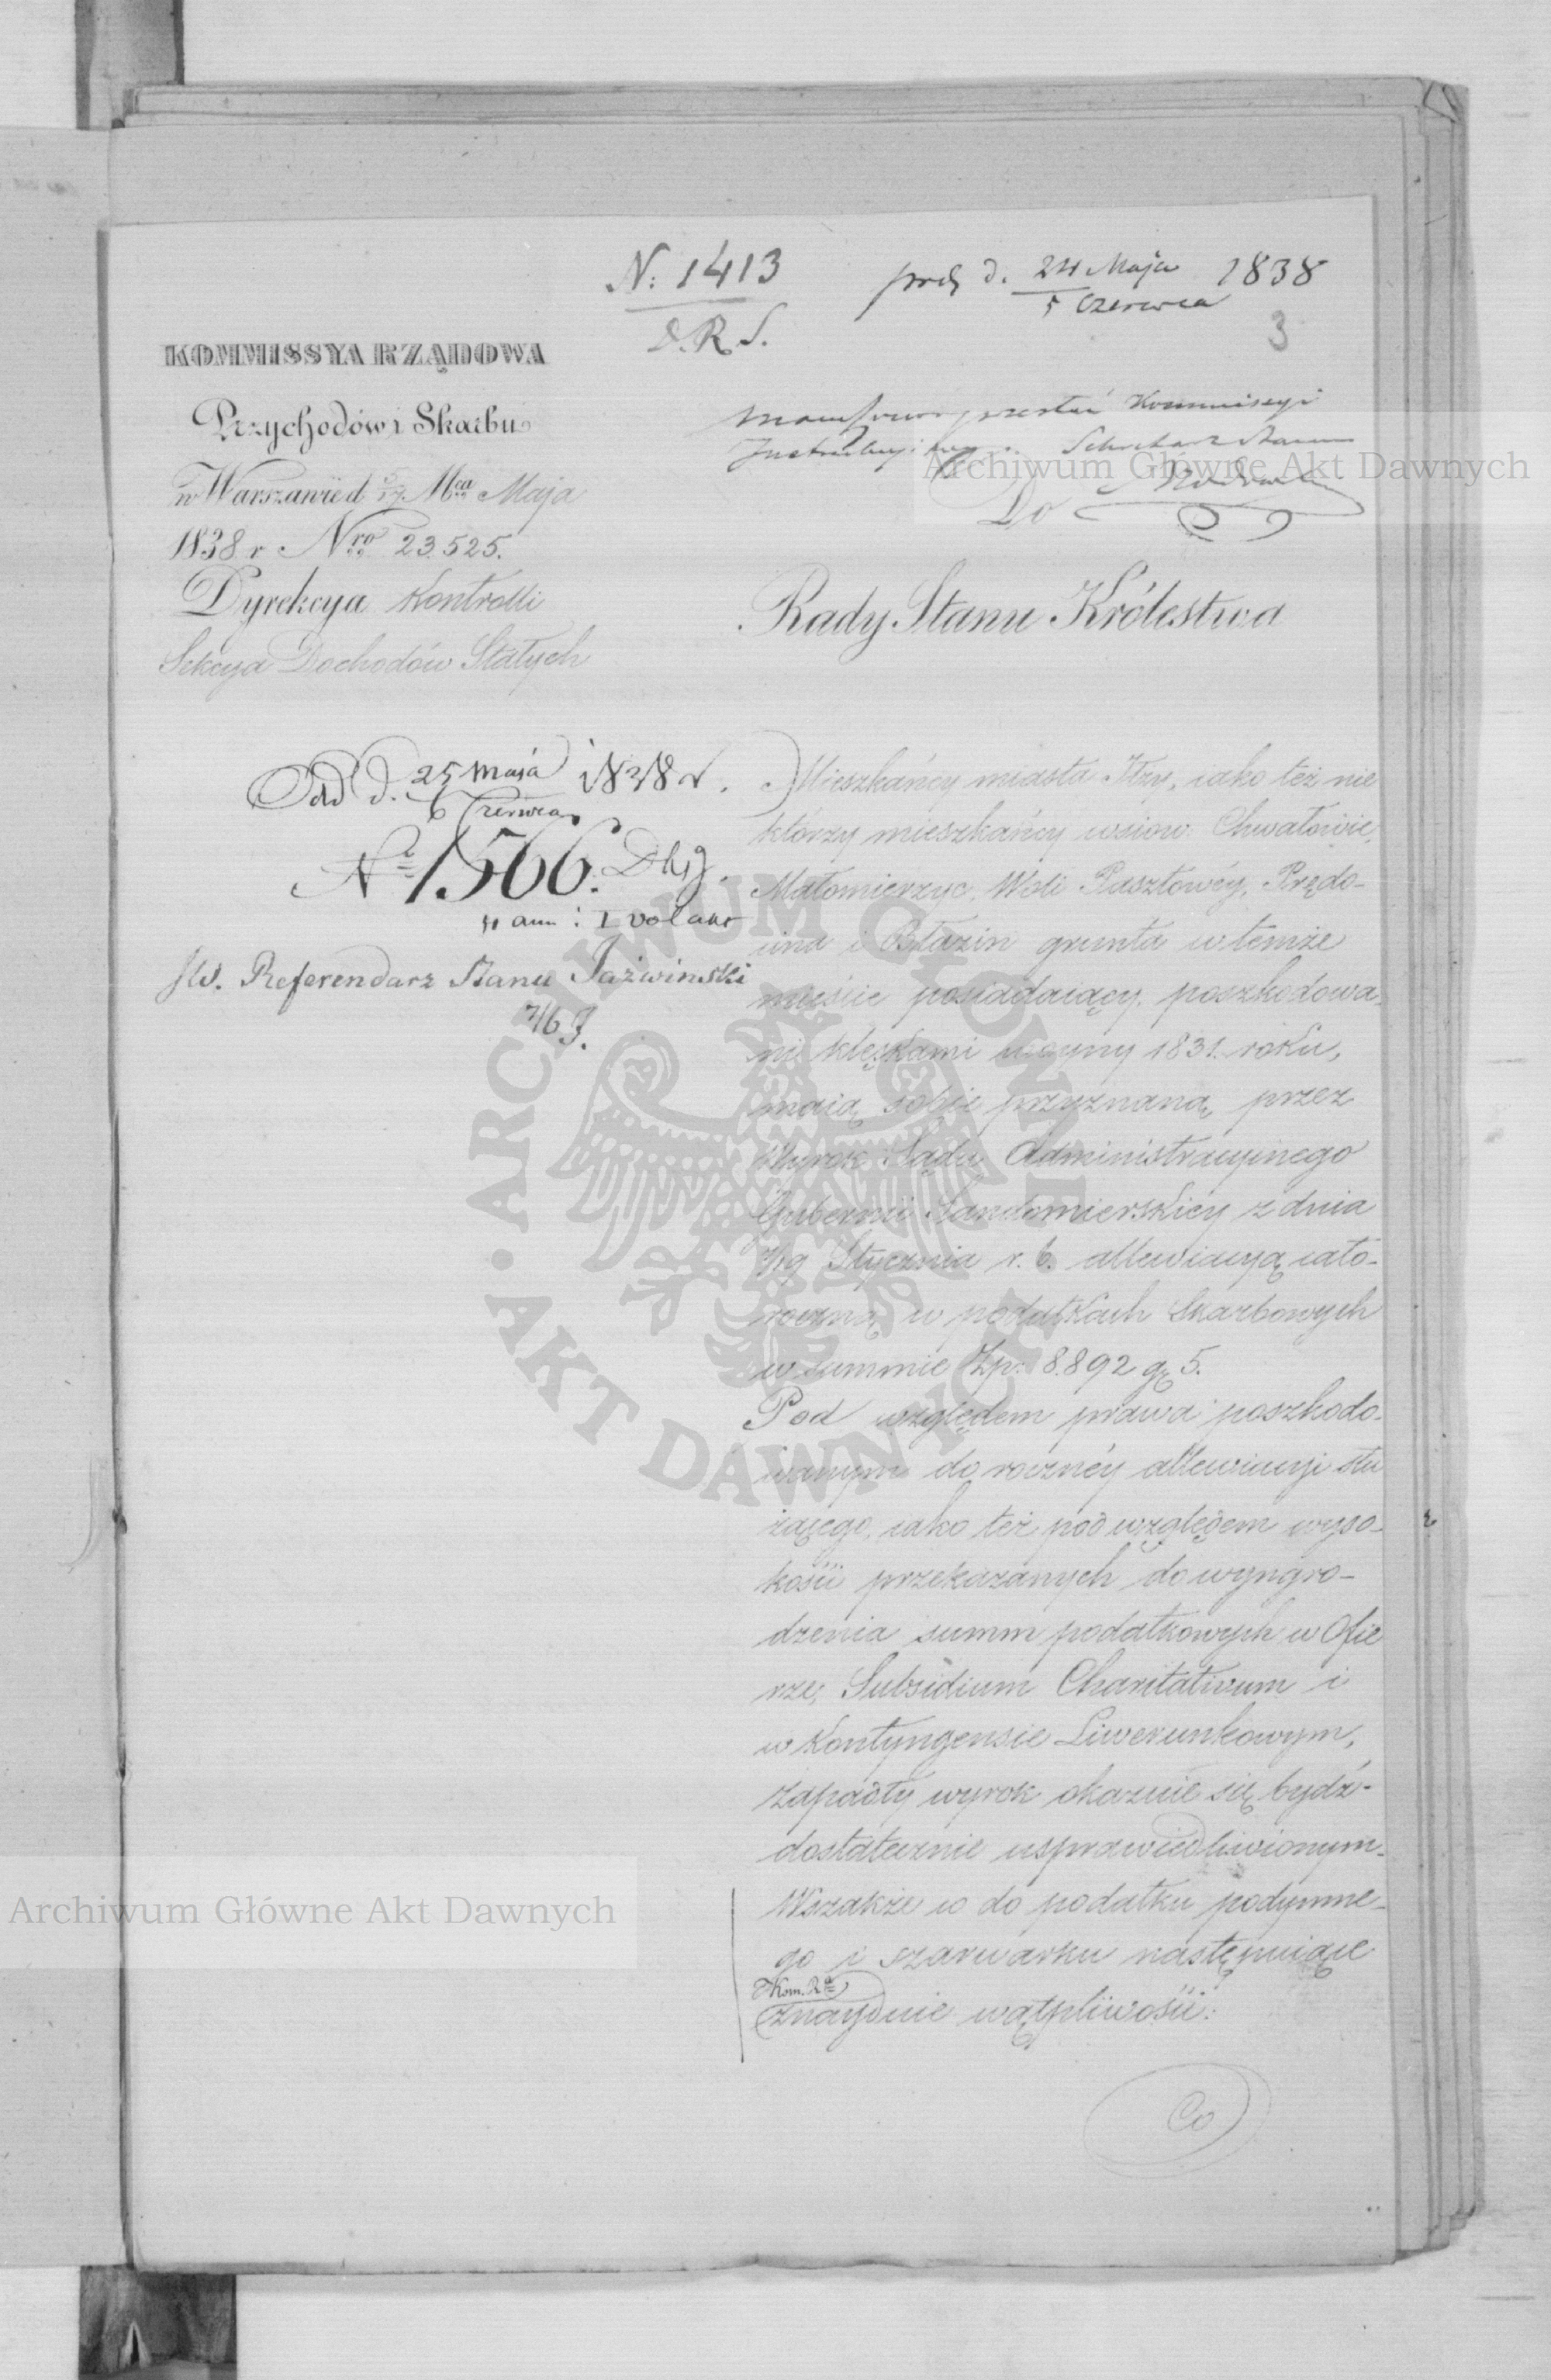 N: 1413
D.R.S.
d. 24 Maja 1838
5 Czerwca
3
KOMMISSYA RZĄDOWA
Przychodów i Skarbu
w Warszawie d 5/17 Mca Maja
1838 r Nro 23.525.
Dyrekcya Kontrolli
Sekcya Dochodów Stałych
przesłać Kommissyi
Sekretarz Stanu
Do
Rady Stanu Królestwa
d. 25 Maja 1838 r.
6 Czerwca
No 1566.
JW. Referendarz Stanu Jaźwinski
7/6 J.
Mieszkańcy miasta Iłży, iako też nie
którzy mieszkańcy wsiow Chwałowic,
Małomierzyc, Woli Pasztowéy, Prędo-
cina i Błazin grunta w temże
mieście posiadaiący, poszkodowa-
ni klęskami woyny 1831. roku,
maią sobie przyznaną przez
Wyrok Sądu Administracyinego
Gubernii Sandomierskiey z dnia
7/19 Stycznia r. b. allewiacyą cało-
roczną w podatkach Skarbowych
w summie Zp. 8.892 gr 5.
Pod względem prawa poszkodo-
wanym do rocznéy allewiacyi słu
żącego, iako też pod względem wyso-
kości przekazanych do wyngro-
dzenia summ podatkowych w Ofie
rze, Subsidium Charitativum i
w Kontyngensie Liwerunkowym,
zapadły wyrok okazuie się bydź
dostatecznie usprawiedliwionym.
Wszakże co do podatku podymne-
go i szarwarku następuiące
Kom. Ra
znayduie wątpliwości:
Co
Archiwum Główne Akt Dawnych
Archiwum Główne Akt Dawnych
ARCHIWUM GŁÓWNE • AKT DAWNYCH •